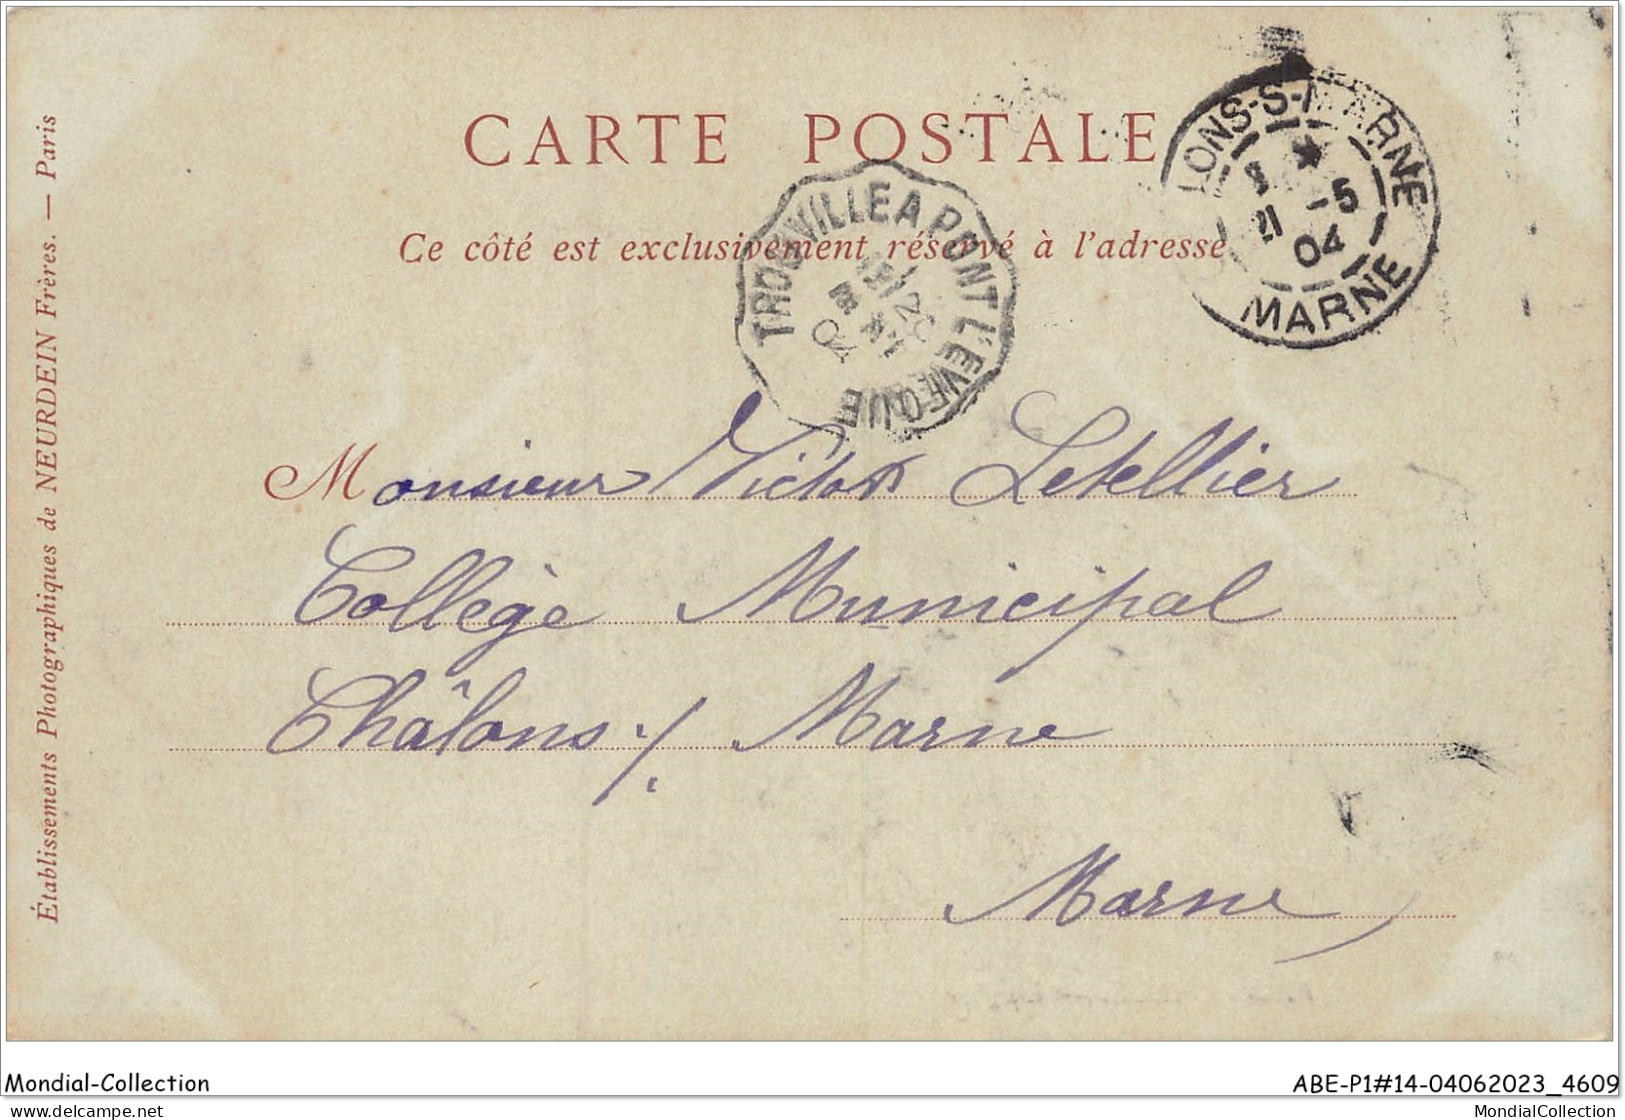 CARTE POSTALE
Ce côté est exclusivement réservé à l'adresse
TROUVILLE A PONT L'EVEQUE
04
LONS-S-MARNE
21 -5
04
MARNE
Monsieur Victor Letellier
Collège Municipal
Châlons s/ Marne
Marne
Établissements Photographiques de NEURDEIN Frères. — Paris
Mondial-Collection
ABE-P1#14-04062023_4609
delcampe.net
MondialCollection